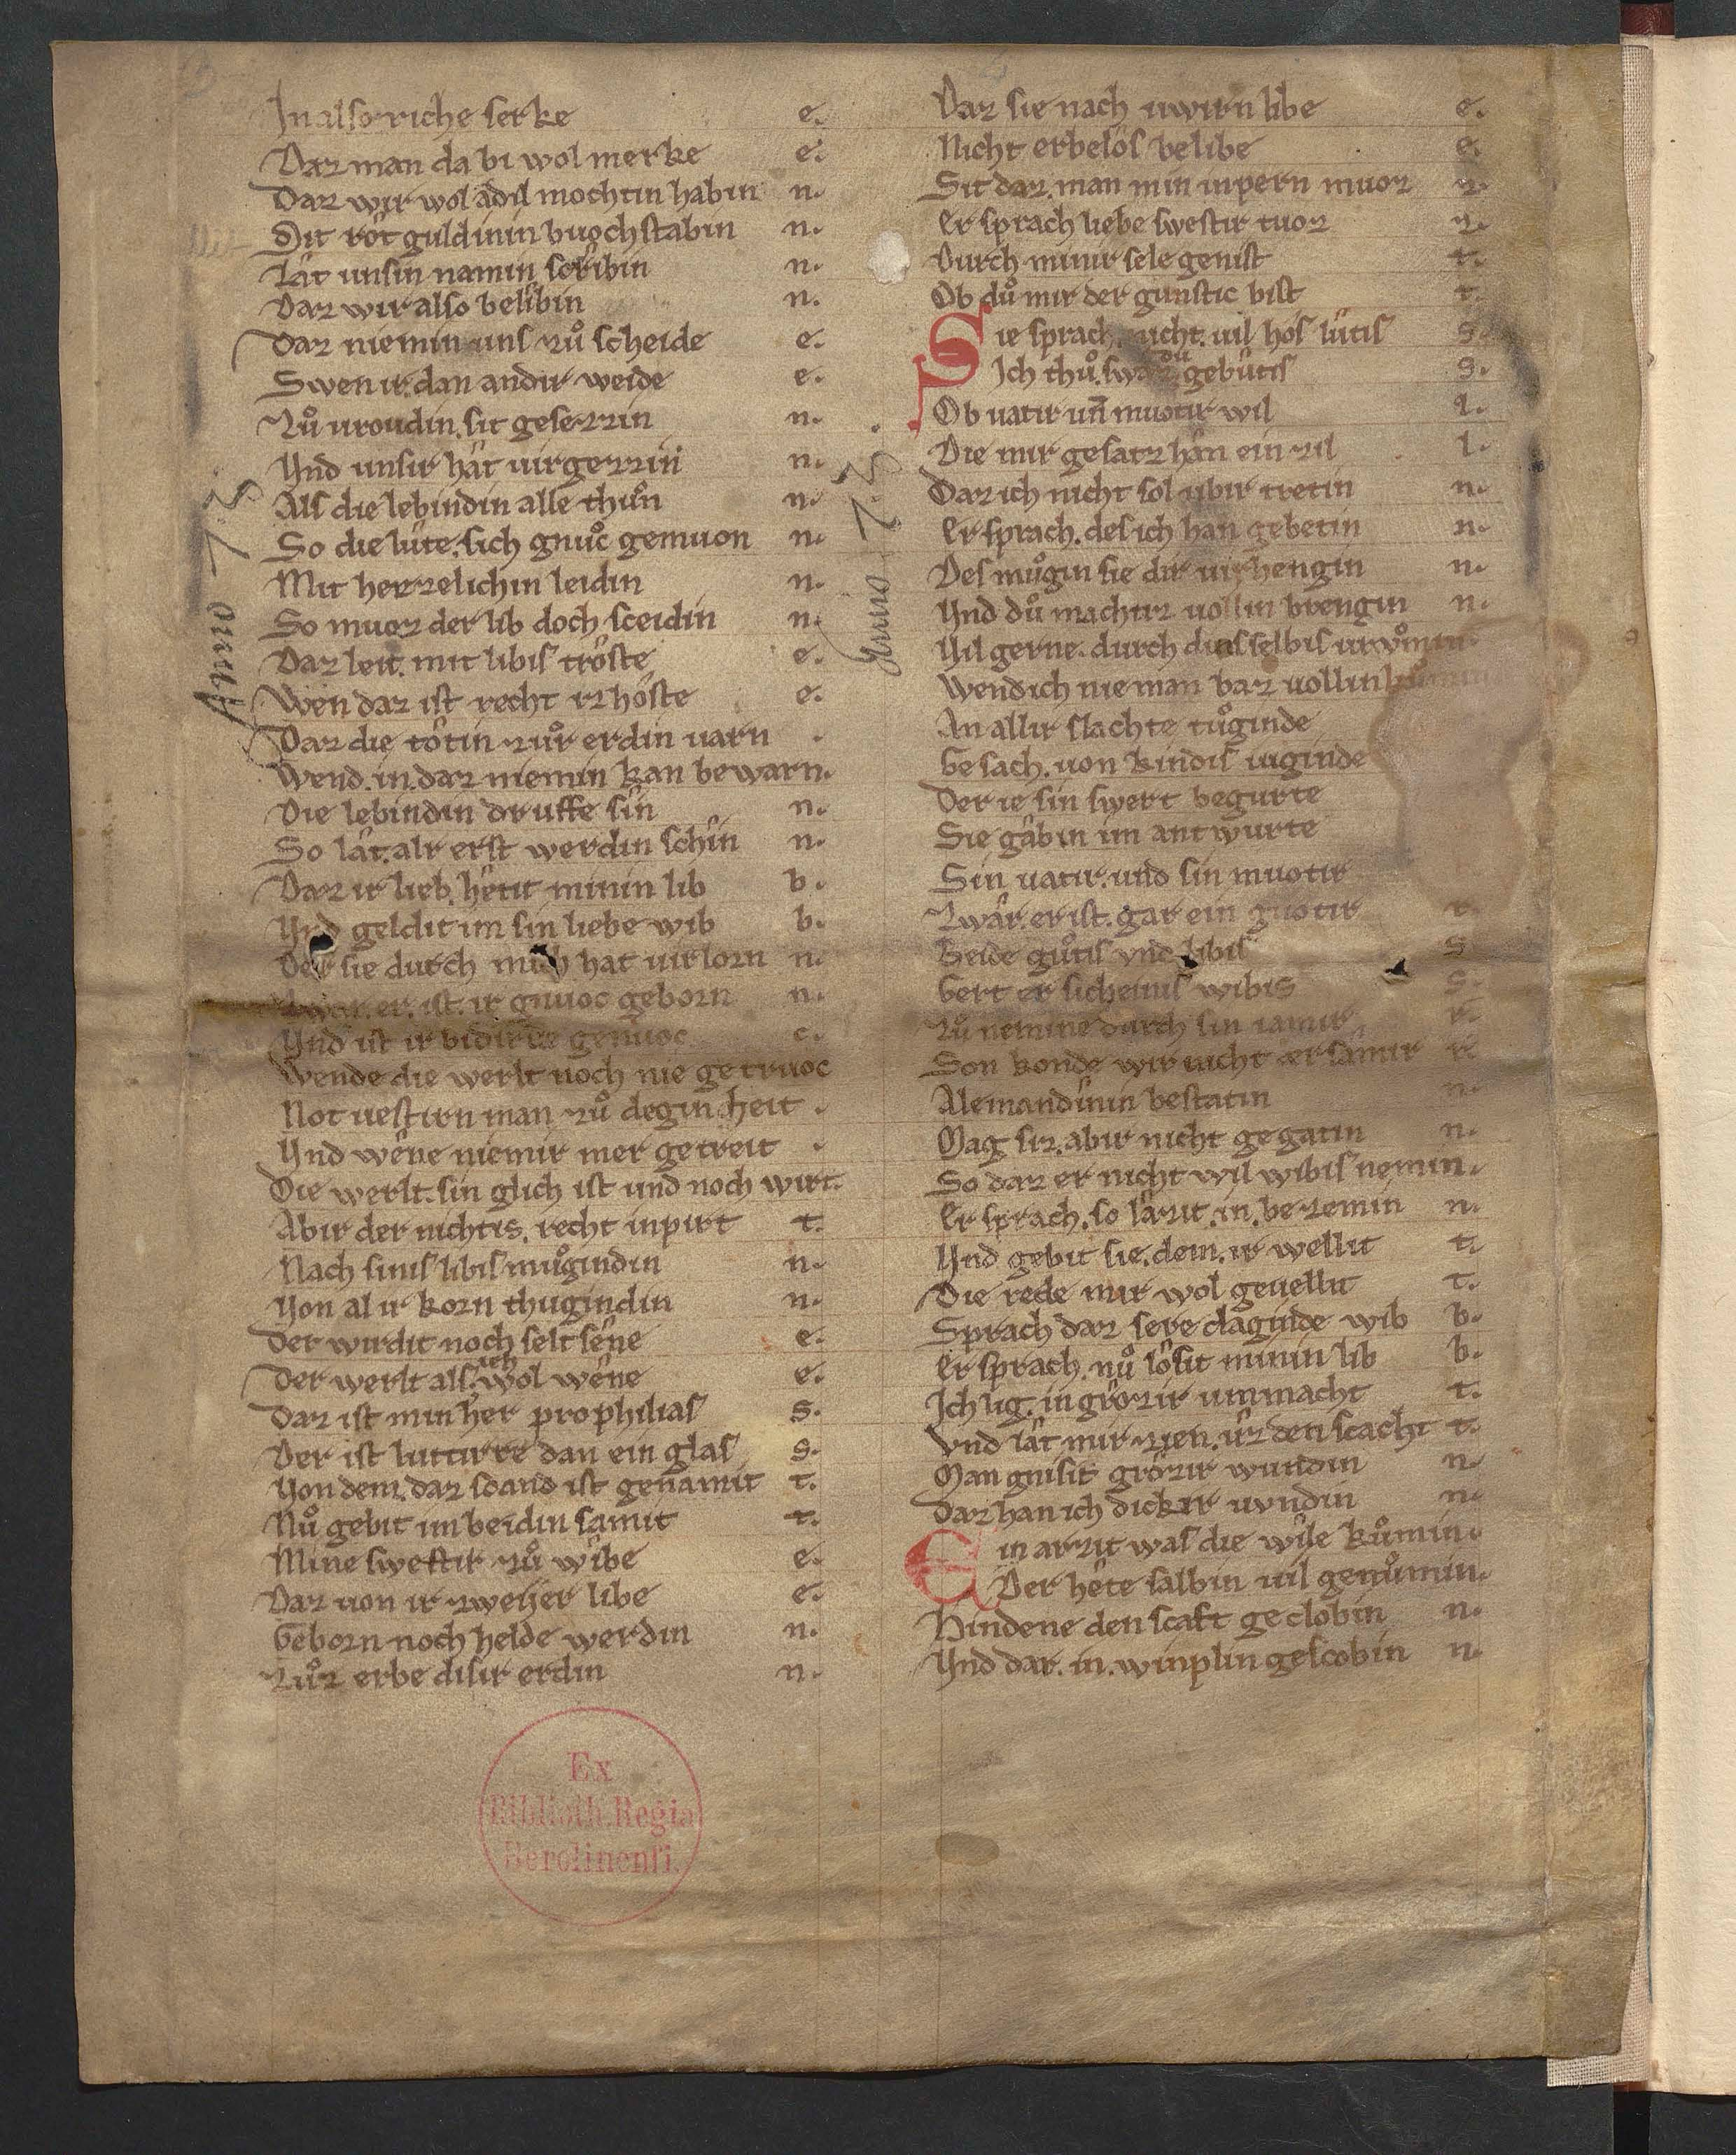 In also riche serke e.
Daz man da bi wol merke e.
Daz wir wol adil mochtin habin n.
Mit rôt guldinin buochstabin n.
Lât unsin namin scrîbin n.
Daz wir also belîbin n.
Daz niemin uns zuͦ scheide e.
Swen ir. dan andir weide e.
Zuͦ vroudin. sit gesezzin n.
Vnd unsir hât virgezzin n.
Als die lebindin alle thuͦn n.
So die lûte. sich gnuͦc gemuon n.
Mit herzelichin leidin n.
So muoz der lib doch sceidin n.
Daz leit. mit libis trôste e.
Wen daz ist recht iz hôste e.
Daz die tôtin zuͦr erdin varn .
Wend. in. daz niemin kan bewarn.
Die lebindin druffe sîn n.
So lât. alr erst werdin schîn n.
Daz ir lieb. hêtit minin lib b.
Vnd geldit im sin liebe wib b.
Der sie durch mich hat virlorn n.
Zwar. er. ist. ir gnuoc geborn n.
Vnd ist ir bidirbe genuoc c.
Wende die werlt noch nie getruoc
Not vestirn man zuͦ deginheit .
Vnd wêne niemir mer getreit .
Die werlt. sin glich ist und noch wirt.
Abir der nichtis. recht inpirt t.
Nach sinis libis muͦgindin n.
Von al ir korn thugindin n.
Der wirdit noch seltsêne e.
Der werlt als. ich wol wêne e.
Daz ist min her prophilias s.
Der ist luttirre dan ein glas s.
Von dem. daz scand ist genamit t.
Nuͦ gebit im beidin samit t.
Mine swestir zuͦ wîbe e.
Daz von ir zweijer libe e.
Geborn noch helde werdin n.
Zuͦr erbe disir erdin n.
Anno 73
Daz sie nach uwirn libe e.
Nicht erbelôs belibe e.
Sit daz. man min inpern muoz z.
Er sprach liebe swestir tuoz z.
Durch minir sele genist t.
Ob duͦ mir der gunstic bist t.
Sie sprach. nicht. vil hos lûtis s.
Ich thuͦ. swaz du gebûtis s.
Ob vatir uñ muotir wil l.
Die mir gesatz hân ein zil l.
Daz ich nicht sol ubir tretin n.
Er sprach. des ich han gebetin n.
Des muͦgin sie dir virhengin n.
Vnd duͦ machtiz vollin brengin n.
Vil gerne. durch dins selbis
Wend ich nie man baz vollin
An allir slachte tuͦginde
Gesach. von kindis iuginde
Der ie sin swert begurte
Sie gâbin im antwurte
Sin vatir. und sin muotir
Zwâr. er ist. gar ein guotir r.
Beide guͦtis vnd libis s
Gert er sicheinis wibis s.
Zuͦ nemine durch sin iamir r.
Son konde wir nicht
Alemandinin bestatin n.
Mag siz. abir nicht gegatin n.
So daz er nicht wil wibis nemin.
Er sprach. so lâzit. in. bezemin n.
Vnd gebit sie. dem. ir wellit t.
Die rede mir wol gevellit t.
Sprach daz sere claginde wib b.
Er sprach. nuͦ lôsit minin lib b.
Ich lig. in grôzir unmacht t.
Vnd lât mir zien. ûz den scacht t.
Man gnisit grôzir wundin n
Daz han ich dickir vundin n
Ein arzit was die wîle kuͦmin.
Der hête salbin vil genuͦmin.
Hindene den scaft geclobin n.
Vnd dar. in. winplin gescobin n.
Anno 73.
Ex
Biblioth. Regia
Berolinensi.